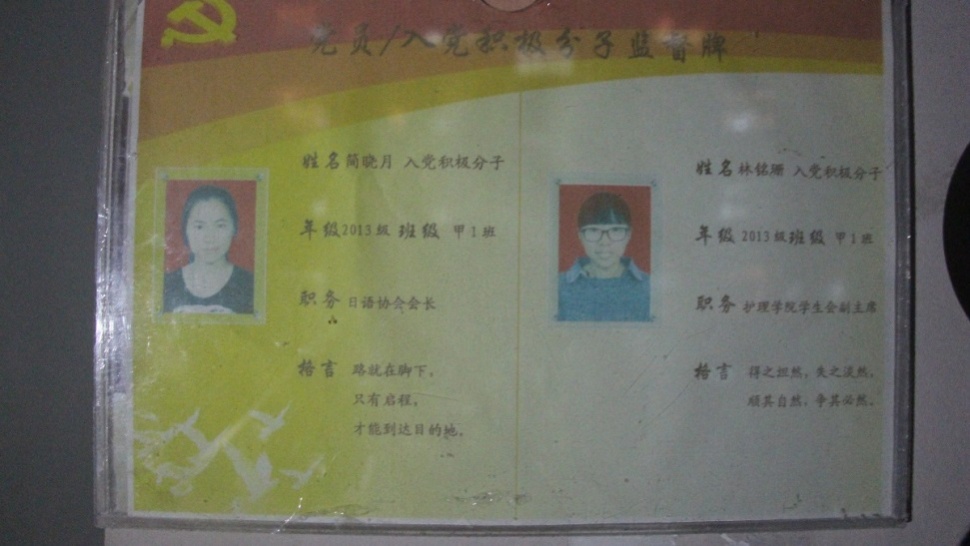 党员/入党积极分子监督牌
姓名 简晓月 入党积极分子
年级 2013级 班级 甲1班
职务 日语协会会长
格言 路就在脚下，
只有启程，
才能到达目的地。
姓名 林铭珊 入党积极分子
年级 2013级 班级 甲1班
职务 护理学院学生会副主席
格言 得之坦然，失之淡然，
顺其自然，争其必然。